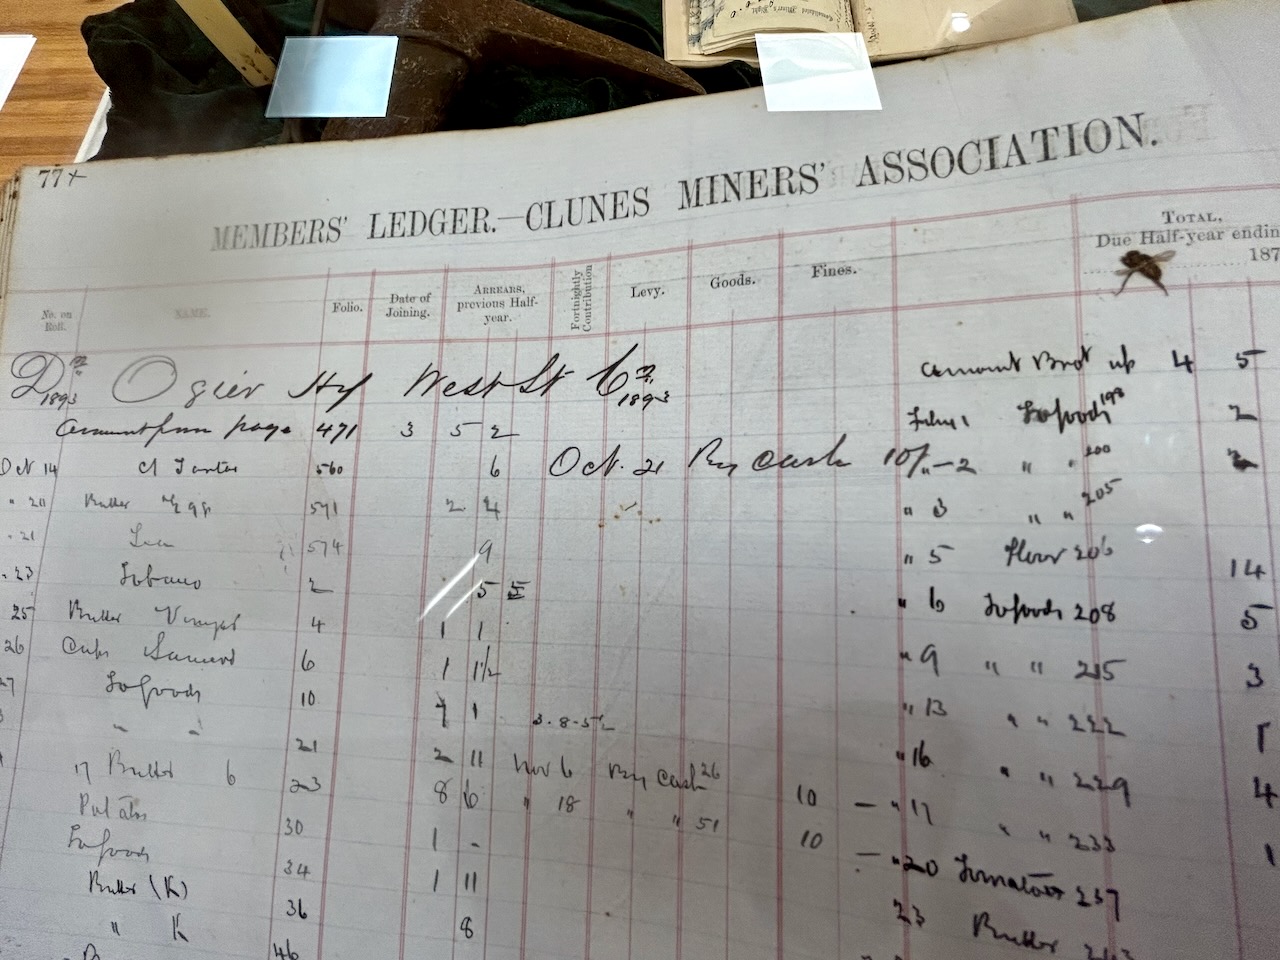 77+
MEMBERS' LEDGER.—CLUNES MINERS' ASSOCIATION.
No. on Roll.
NAME.
Folio.
Date of Joining.
ARREARS, previous Half-year.
Fortnightly Contribution
Levy.
Goods.
Fines.
TOTAL,
Due Half-year endin
187
1893 Ogier Hy West St 1893
Amount from page 471 3 5 2
Oct 14 560 6 Oct. 21 By Cash 10/-
" 20 Butter Eggs 571 2 4
" 21 574 9
" 23 2 5
25 Butter Vinegar 4 1 1
26 Cups 6 1 1½
27 To goods 10 7 1
" " 21 2 11 Nov 6 By Cash 26 10 —
17 Butter 6 23 8 6 " 18 " " 51 10 —
Potatoes 30 1 -
To goods 34 1 11
Butter (K) 36 8
" K 46
Amount Brot up 4 5
To goods 198 2
2 " " 200
" 3 " " 205
" 5 Flour 206 14
" 6 To goods 208 5
" 9 " " 215 3
" 13 " " 222
" 16 " " 229 4
" 17 " " 233 1
" 20 Tomatoes 237
23 Butter